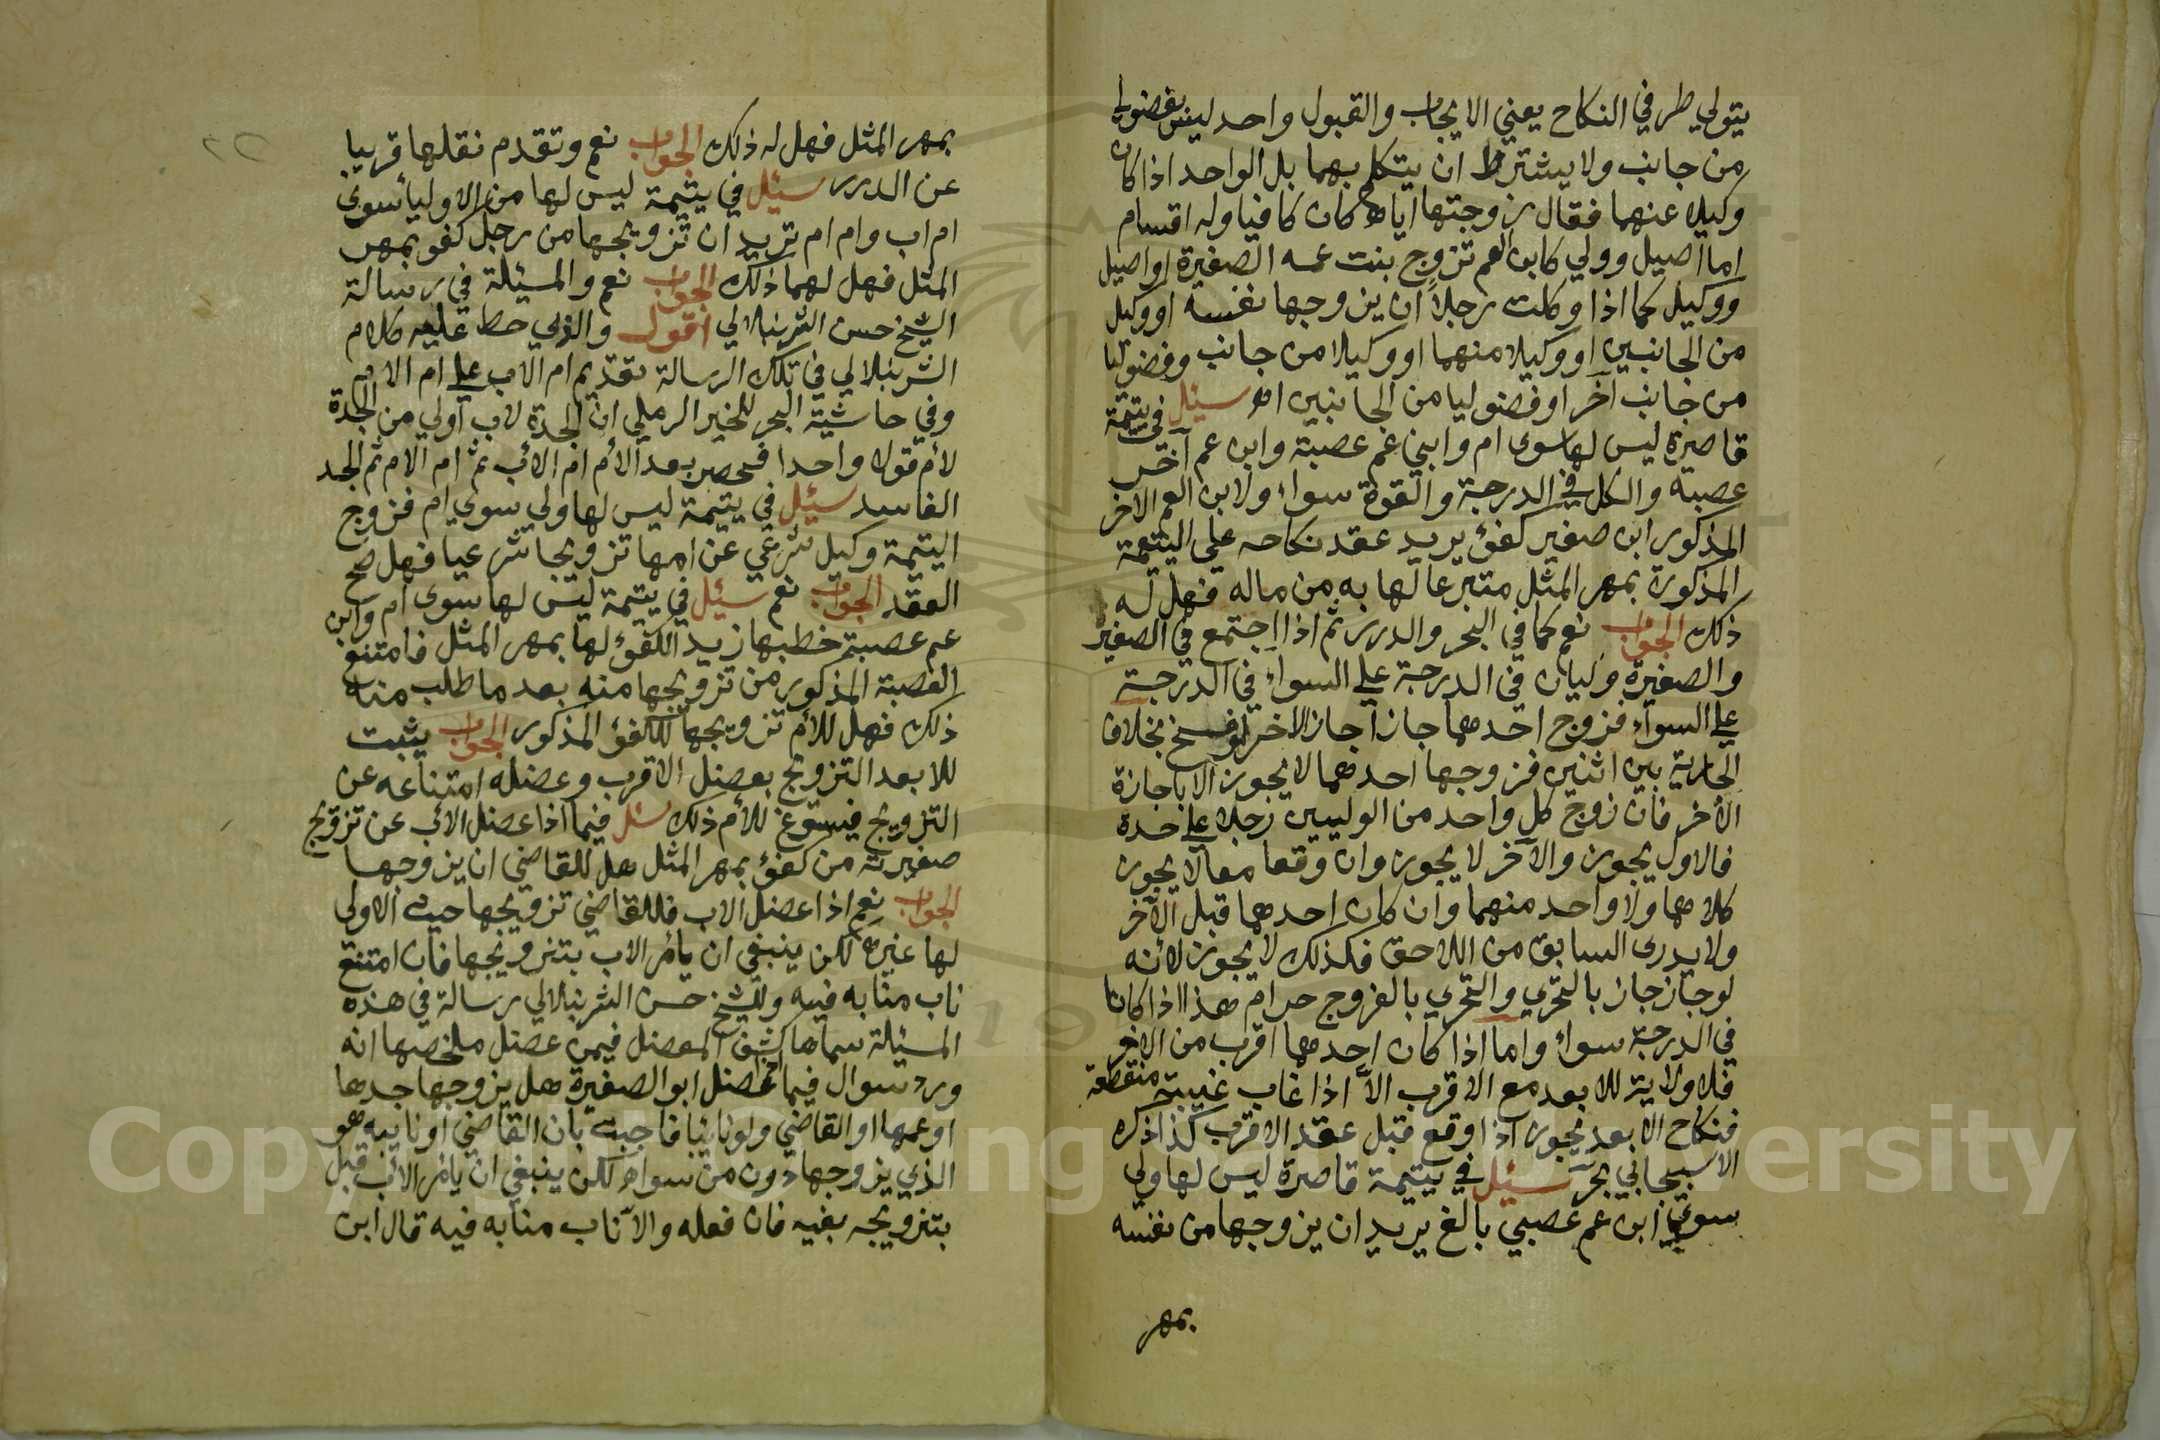 يتولي طرفي النكاح يعني الايجاب والقبول واحد ليس بفضولي
من جانب ولا يشترط ان يتكلم بهما بل الواحد اذا كان
وكيلا عنهما فقال زوجتها اياه كان كافيا وله اقسام
اما اصيل وولي كابن العم تزوج بنت عمه الصغيرة او اصيل
ووكيل كما اذا وكلت رجلا ان يزوجها نفسه او وكيل
من الجانبين او وكيلا منهما او وكيلا من جانب وفضوليا
من جانب آخر او فضوليا من الجانبين اهـ سئل في يتيمة
قاصرة ليس لها سوى ام وابني عم عصبة وابن عم آخر
عصبة والكل في الدرجة والقوة سواء ولابن العم الاخر
المذكور ابن صغير كفؤ يريد عقد نكاحه علي اليتيمة
المذكورة بمهر المثل متبرعا لها به من ماله فهل له
ذلك الجواب نعم كما في البحر والدرر ثم اذا اجتمع في الصغير
والصغيرة وليان في الدرجة علي السواء في الدرجة
علي السواء فزوج احدهما جاز اجاز الاخر او فسخ بخلاف
الجارية بين اثنين فزوجها احدهما لا يجوز الا باجازة
الأخر فان زوج كل واحد من الوليين رجلا علي حدة
فالاول يجوز والآخر لا يجوز وان وقعا معا لا يجوز
كلاهما ولا واحد منهما وان كان احدهما قبل الآخر
ولا يدرى السابق من اللاحق فكذلك لا يجوز لأنه
لو جاز جاز بالتحري والتحري بالفروج حرام هذا اذا كانا
في الدرجة سواء واما اذا كان احدهما اقرب من الاخر
فلا ولاية للابعد مع الاقرب الا اذا غاب غيبة منقطعة
فنكاح الابعد يجوز اذا وقع قبل عقد الاقرب كذا ذكره
الاسبيجابي بحر سئل في يتيمة قاصرة ليس لها ولي
سوى ابن عم عصبي بالغ يريد ان يزوجها من نفسه
بمهر
بمهر المثل فهل له ذلك الجواب نعم وتقدم نقلها قريبا
عن الدرر سئل في يتيمة ليس لها من الاوليا سوى
ام اب وام ام تريد ان تزويجها من رجل كفو بمهر
المثل فهل لهما ذلك الجواب نعم والمسئلة في رسالة
الشيخ حسن الشرنبلالي اقول والذي حط عليه كلام
الشرنبلالي في تلك الرسالة تقديم ام الاب علي ام الام
وفي حاشية البحر للخير الرملي ان الجدة لاب اولي من الجدة
لأم قولا واحدا فتحصر بعد الأم ام الأب ثم ام الام ثم الجد
الفاسد سئل في يتيمة ليس لها ولي سوي ام فزوج
اليتيمة وكيل شرعي عن امها تزويجا شرعيا فهل صح
العقد الجواب نعم سئل في يتيمة ليس لها سوى ام وابن
عم عصبتم خطبها زيد الكفؤ لها بمهر المثل فامتنع
العصبة المذكور من تزويجها منه بعد ما طلب منه
ذلك فهل للأم تزويجها للكفؤ المذكور الجواب يثبت
للابعد التزويج بعضل الاقرب وعضله امتناعه عن
التزويج فيسوغ للأم ذلك سئل فيما اذا عضل الأب عن تزويج
صغيرته من كفؤ بمهر المثل هل للقاضي ان يزوجها
الجواب نعم اذا عضل الاب فللقاضي تزويجها حيث الاولى
لها غيره لكن ينبغي ان يأمر الاب بتزويجها فان امتنع
ناب منابه فيه وللشيخ حسن الشرنبلالي رسالة في هذه
المسئلة سماها كشف المعضل فيمن عضل ملخصها انه
ورد سوال فيما عضل ابو الصغيرة هل يزوجها جدها
او عمها او القاضي ولو نايبا فاجبت بأن القاضي او نايبه هو
الذي يزوجها دون من سواه لكن ينبغي ان يأمر الأب قبل
بتزويجه بغيه فان فعله والا ناب منابه فيه قال ابن